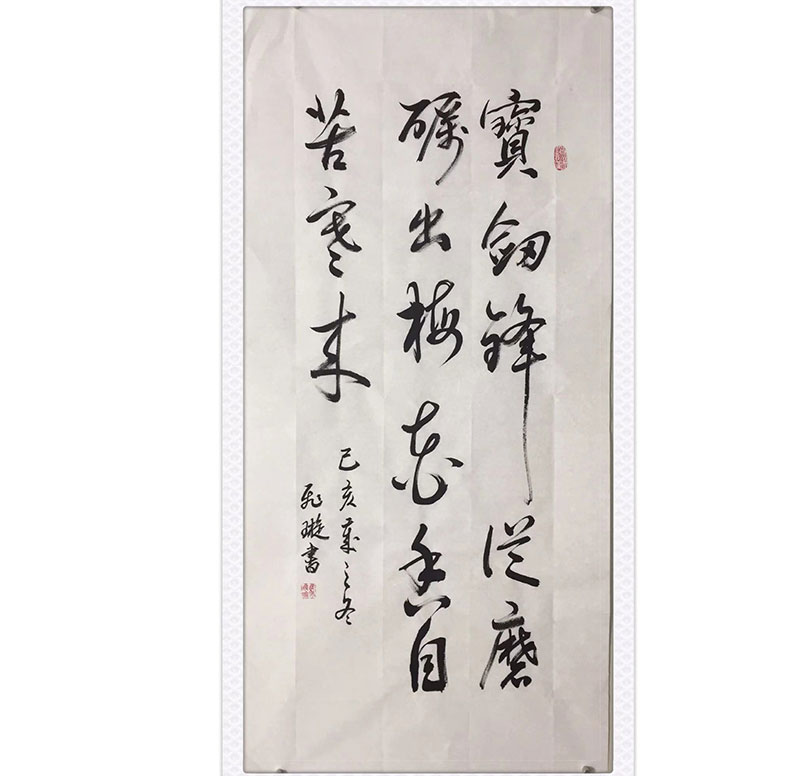 寶劍鋒從磨
礪出梅花香自
苦寒來
己亥歲之冬
飛璇書